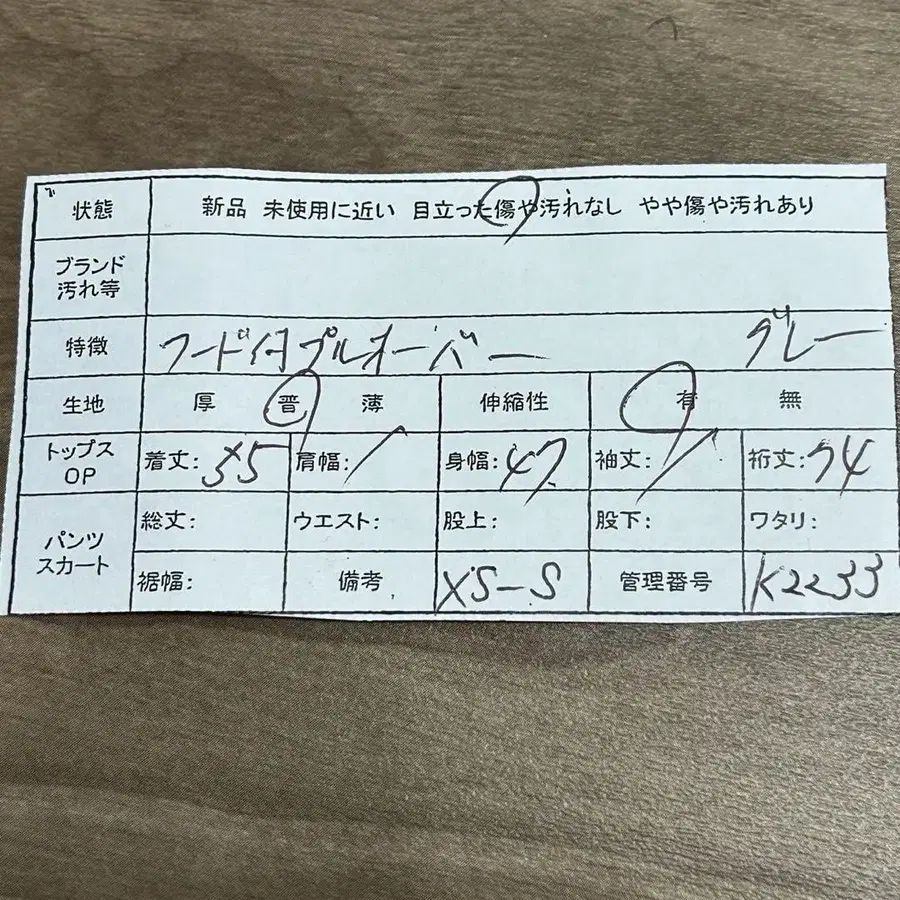 状態 新品 未使用に近い 目立った傷や汚れなし やや傷や汚れあり
ブランド
汚れ等
特徴 フード付プルオーバー グレー
生地 厚 普 薄 伸縮性 有 無
トップス
OP 着丈: 55 肩幅: / 身幅: 47 袖丈: / 裄丈: 74
パンツ
スカート 総丈: ウエスト: 股上: 股下: ワタリ:
裾幅: 備考 XS-S 管理番号 K2233